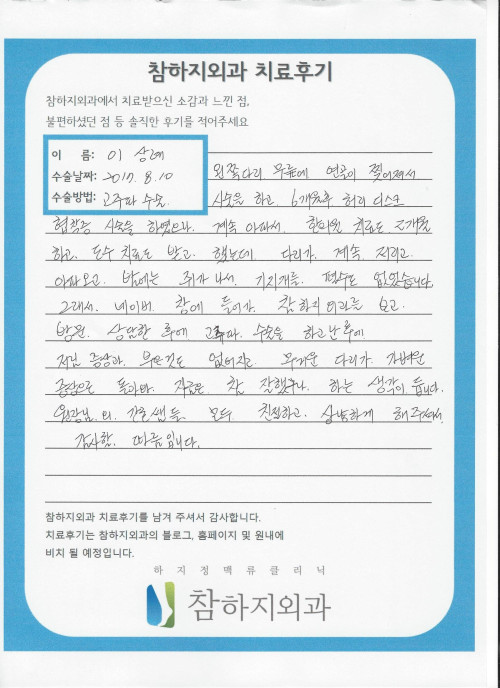 참하지외과 치료후기
참하지외과에서 치료받으신 소감과 느낀 점,
불편하셨던 점 등 솔직한 후기를 적어주세요
이 름: 이 상례
수술날짜: 2017. 8. 10
수술방법: 고주파 수술
왼쪽다리 무릎에 연골이 찢어져서
시술을 하고. 6개월후 허리 디스크
협착증 시술을 하였으나. 계속 아파서. 한의원 치료도 2개월
하고. 도수 치료도 받고. 했는데. 다리가. 계속. 저리고.
아파오고. 밤에는 쥐가 나서. 기지개를. 펼수도 없었습니다.
그래서. 네이버. 창에 들어가. 참하지외과를 보고.
방문. 상담한 후에 고주파. 수술을 하고난후에
저림 증상과. 부은것도 없어지고. 무거운 다리가. 가벼운
증상으로 돌아와. 지금은 참 잘했구나. 하는 생각이 듭니다.
원장님. 외. 간호샘들. 모두. 친절하고. 상냥하게 해주셔서.
감사할. 따름입니다.
참하지외과 치료후기를 남겨 주셔서 감사합니다.
치료후기는 참하지외과의 블로그, 홈페이지 및 원내에
비치 될 예정입니다.
하지정맥류클리닉
참하지외과